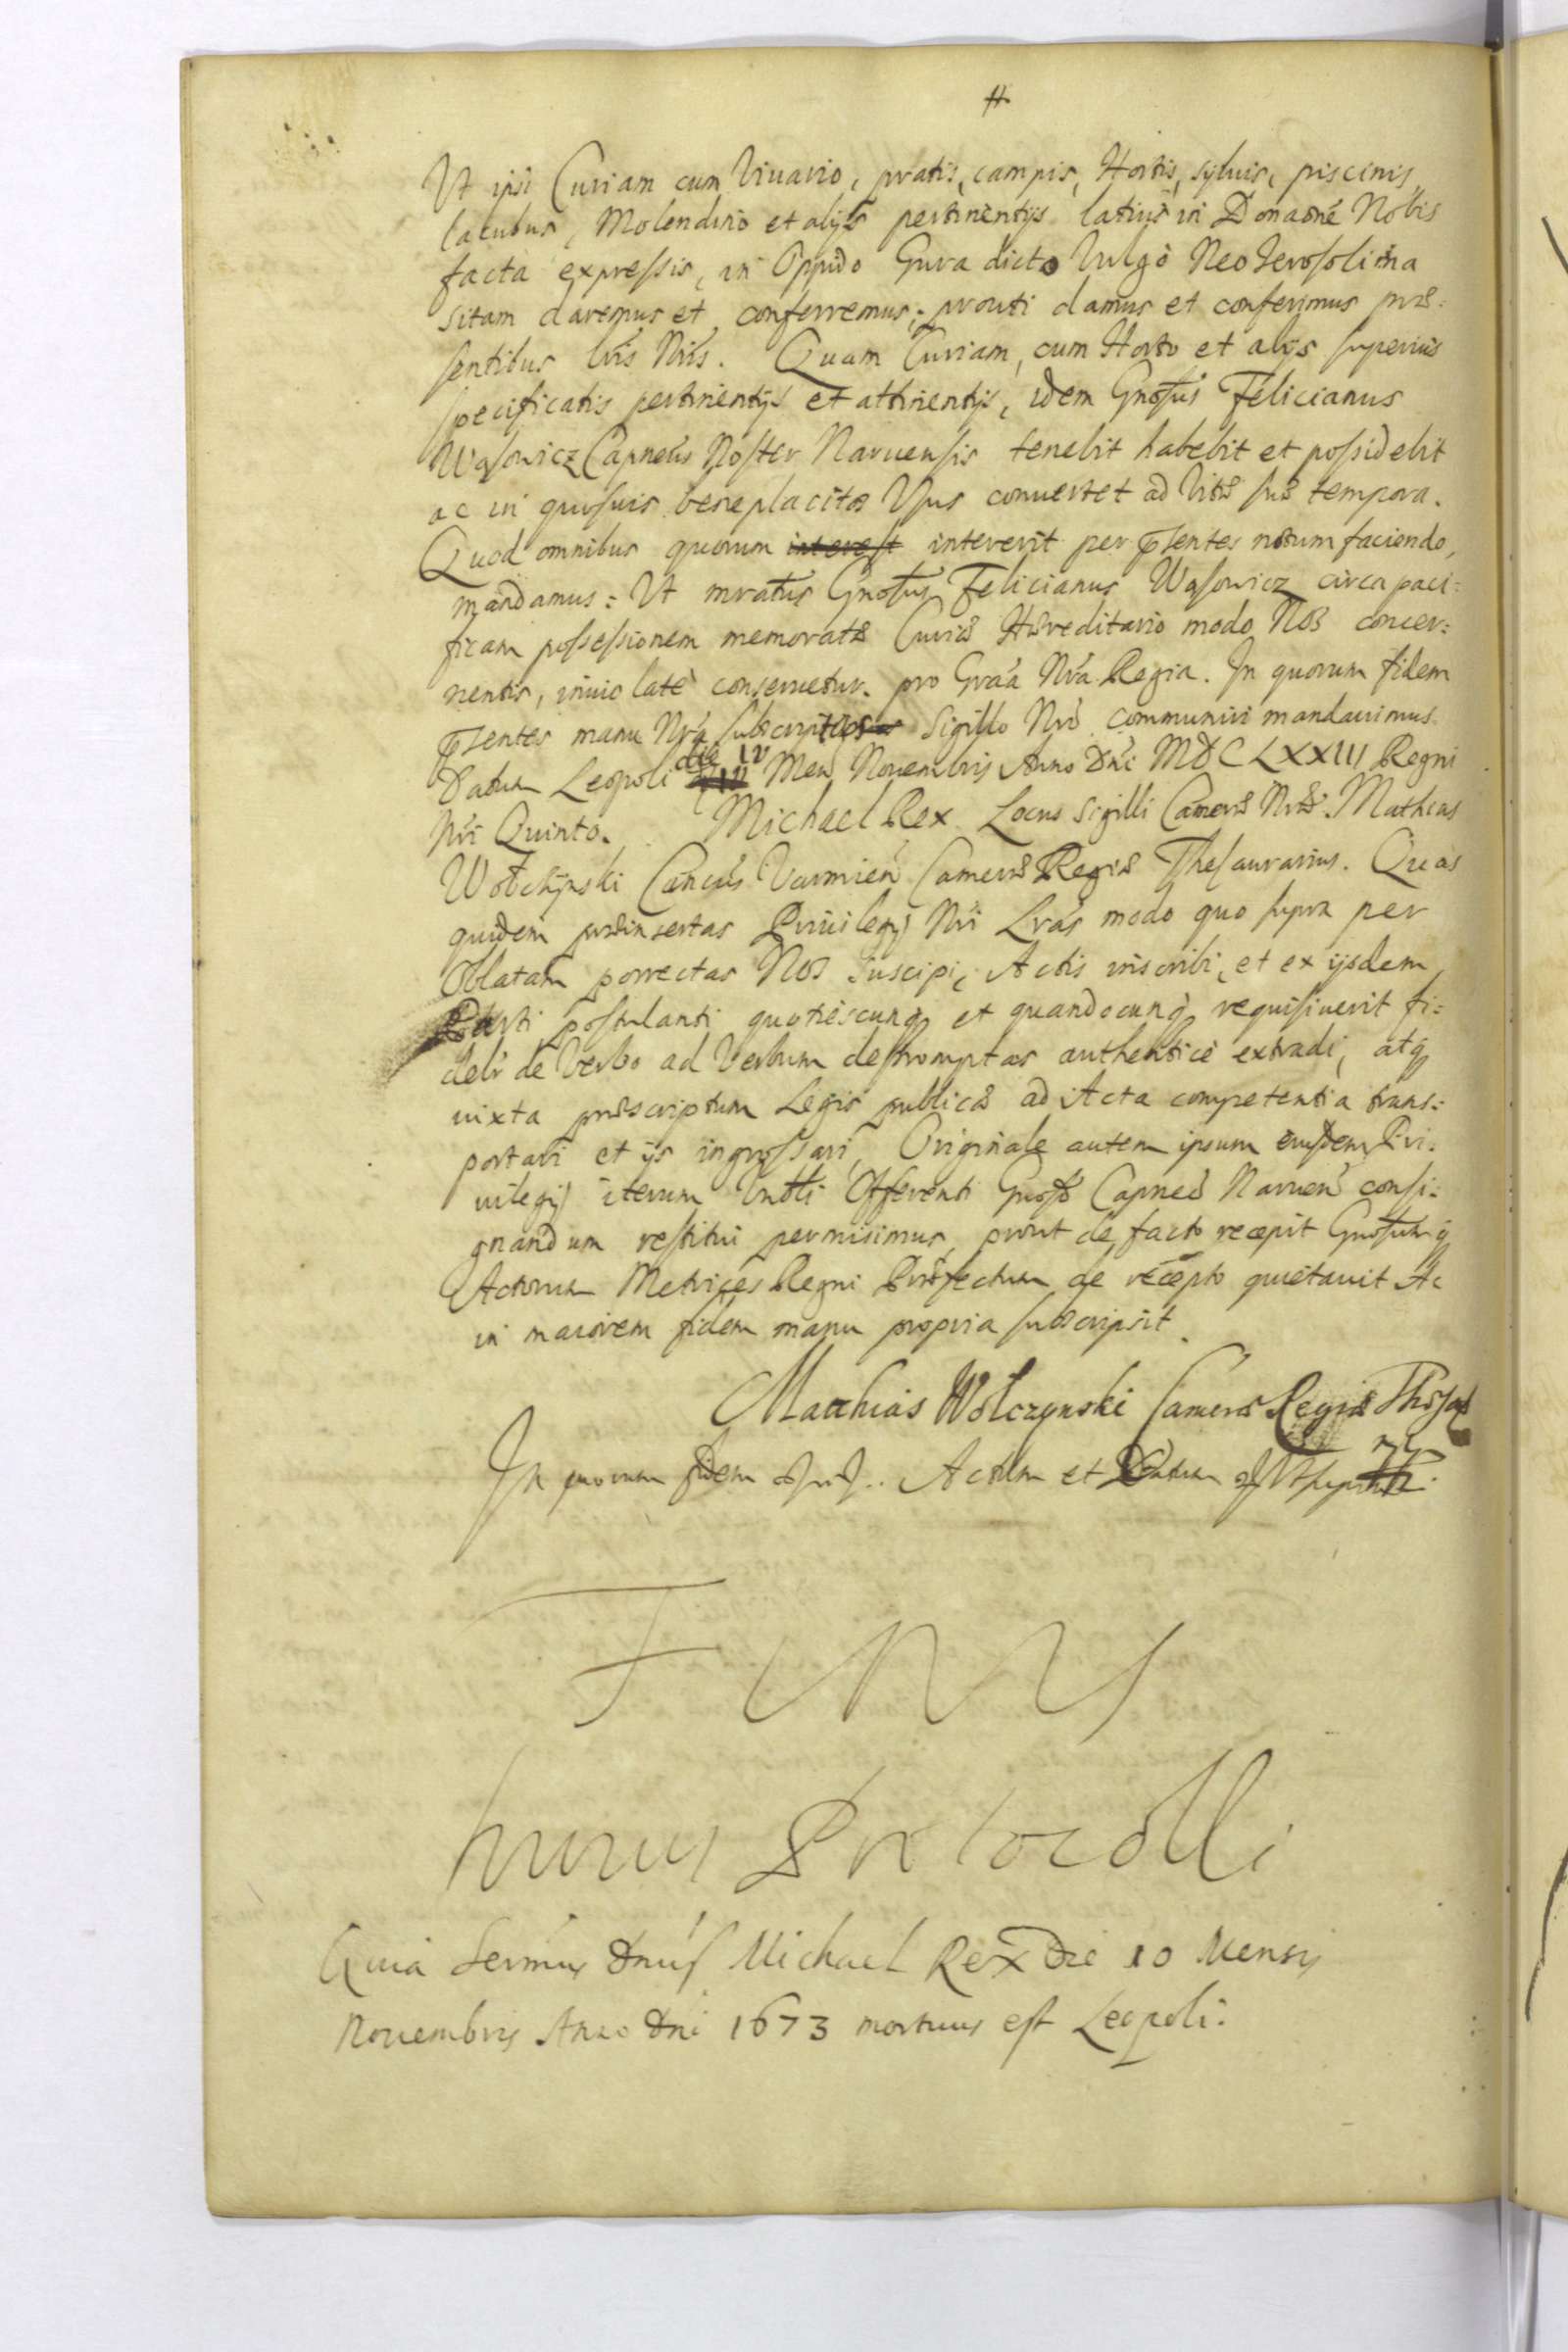 #
Ut ipsi Curiam cum Vivario, pratis, campis, Hortis, sylvis, piscinis,
lacubus, Molendino et alijs pertinentijs latius in Donaone Nobis
facta expressis, in Oppido Gura dicto Vulgo Neo Ierosolima
sitam daremus et conferremus; prouti damus et conferimus præ=
sentibus lris Nris. Quam Curiam, cum Horto et alijs superius
specificatis pertinentijs et attinentijs, idem Gnosus Felicianus
Wąsowicz Capneus Noster Narvensis tenebit habebit et possidebit
ac in quosvis beneplacitos Usus convertet ad Vitæ suæ tempora.
Quod omnibus quorum interest intererit per pntes notum faciendo,
mandamus: Ut mratus Gnosus Felicianus Wąsowicz circa paci=
ficam possessionem memoratæ Curiæ Hæreditario modo Nos concer=
nentis, inviolatè conservetur. pro Graa Nra Regia. In quorum fidem
pntes manu Nra subscriptas Sigillo Nro communiri mandavimus.
Datum Leopoli die IV Men Novembris Anno Dni MDCLXXIII Regni
Nri Quinto. Michael Rex Locus Sigilli Cameræ Nræ. Mathias
Wolczynski Cancus Varmien Cameræ Regiæ Thesaurarius. Quas
quidem præinsertas Privilegij Nri Lras modo quo supra per
Oblatam porrectas Nos suscipi, Actis inscribi, et ex ijsdem
Parti postulanti quotiescunq et quandocunq requisiverit fi=
deli de Verbo ad Verbum depromptas authenticè extradi, atq
iuxta præscriptum Legis publicæ ad Acta competentia trans=
portari et ijs ingrossari, Originale autem ipsum eiusdem Pri=
vilegij iterum Offerenti Gnoso Capneo Narven consi=
gnandum restitui permisimus, prout de facto recepit Gnosumq
Actorum Metrices Regni Præfectum de recepto quietavit Ac
in maiorem fidem manu propria subscripsit.
Matthias Wolczynski Cameræ Regiæ Thesaq
In quorum fidem Actum et Datum
Finis
huius Protocolli
Quia Sermus Dnus Michael Rex die 10 Mensis
Novembris Anno Dni 1673 mortuus est Leopoli.